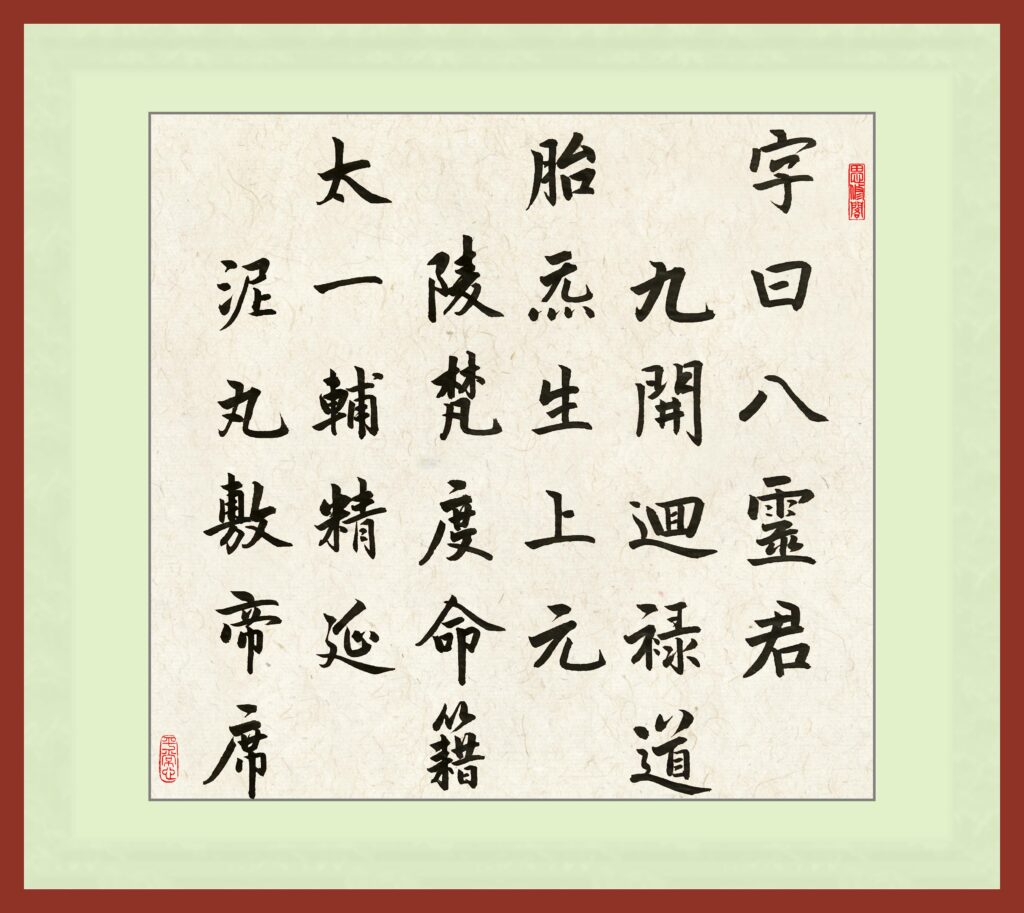 字曰八靈君
九開迴禄道
胎炁生上元
陵梵度命籍
太一輔精延
泥丸敷帝席
平常心